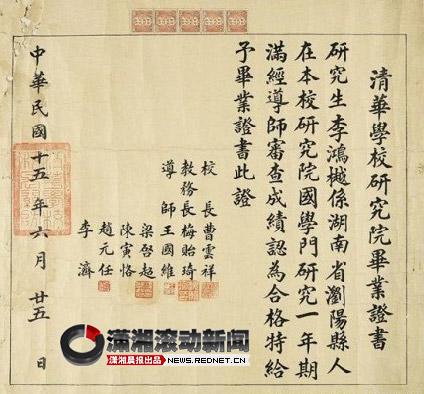 清華學校研究院畢業證書
研究生李鴻樾係湖南省瀏陽縣人
在本校研究院國學門研究一年期
滿經導師審查成績認為合格特給
予畢業證書此證
校長曹雲祥
教務長梅貽琦
導師王國維
梁啓超
陳寅恪
趙元任
李濟
中華民國十五年六月廿五日
潇湘滚动新闻
潇湘晨报出品
NEWS.REDNET.CN